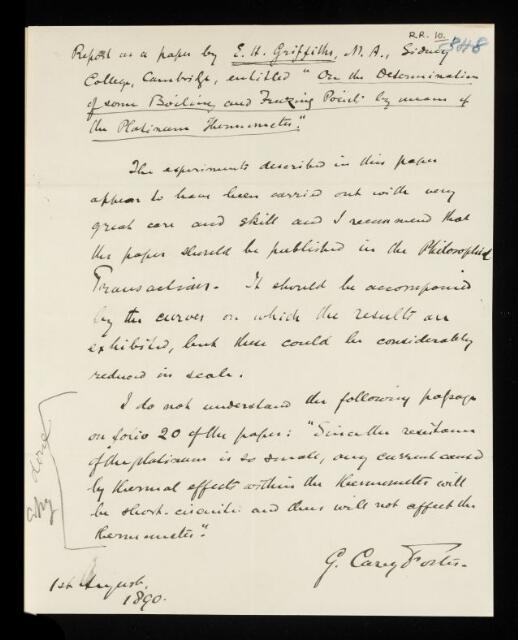 R.R. 10.
Report on a paper by E. H. Griffiths, M.A., Sidney
College, Cambridge, entitled "On the Determination
of some Boiling and Freezing Points by means of
the Platinum Thermometer."
The experiments described in this paper
appear to have been carried out with very
great care and skill and I recommend that
the paper should be published in the Philosophical
Transactions. It should be accompanied
by the curves on which the results are
exhibited, but these could be considerably
reduced in scale.
I do not understand the following passage
on folio 20 of the paper: "Since the resistance
of the platinum is so small, any current caused
by thermal effects within the thermometer will
be short-circuited and thus will not affect the
thermometer".
G. Carey Foster.
1st August,
1890.